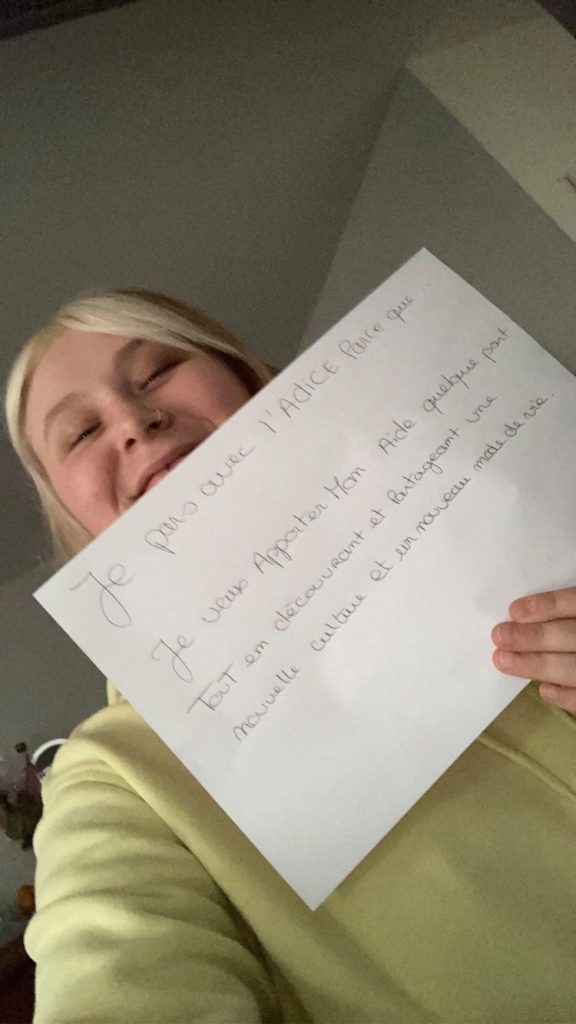 Je pars avec l'ADICE Parce que
Je veux Apporter Mon Aide quelque part
Tout em découvrant et Partageant une
nouvelle culture et un nouveau mode de vie.